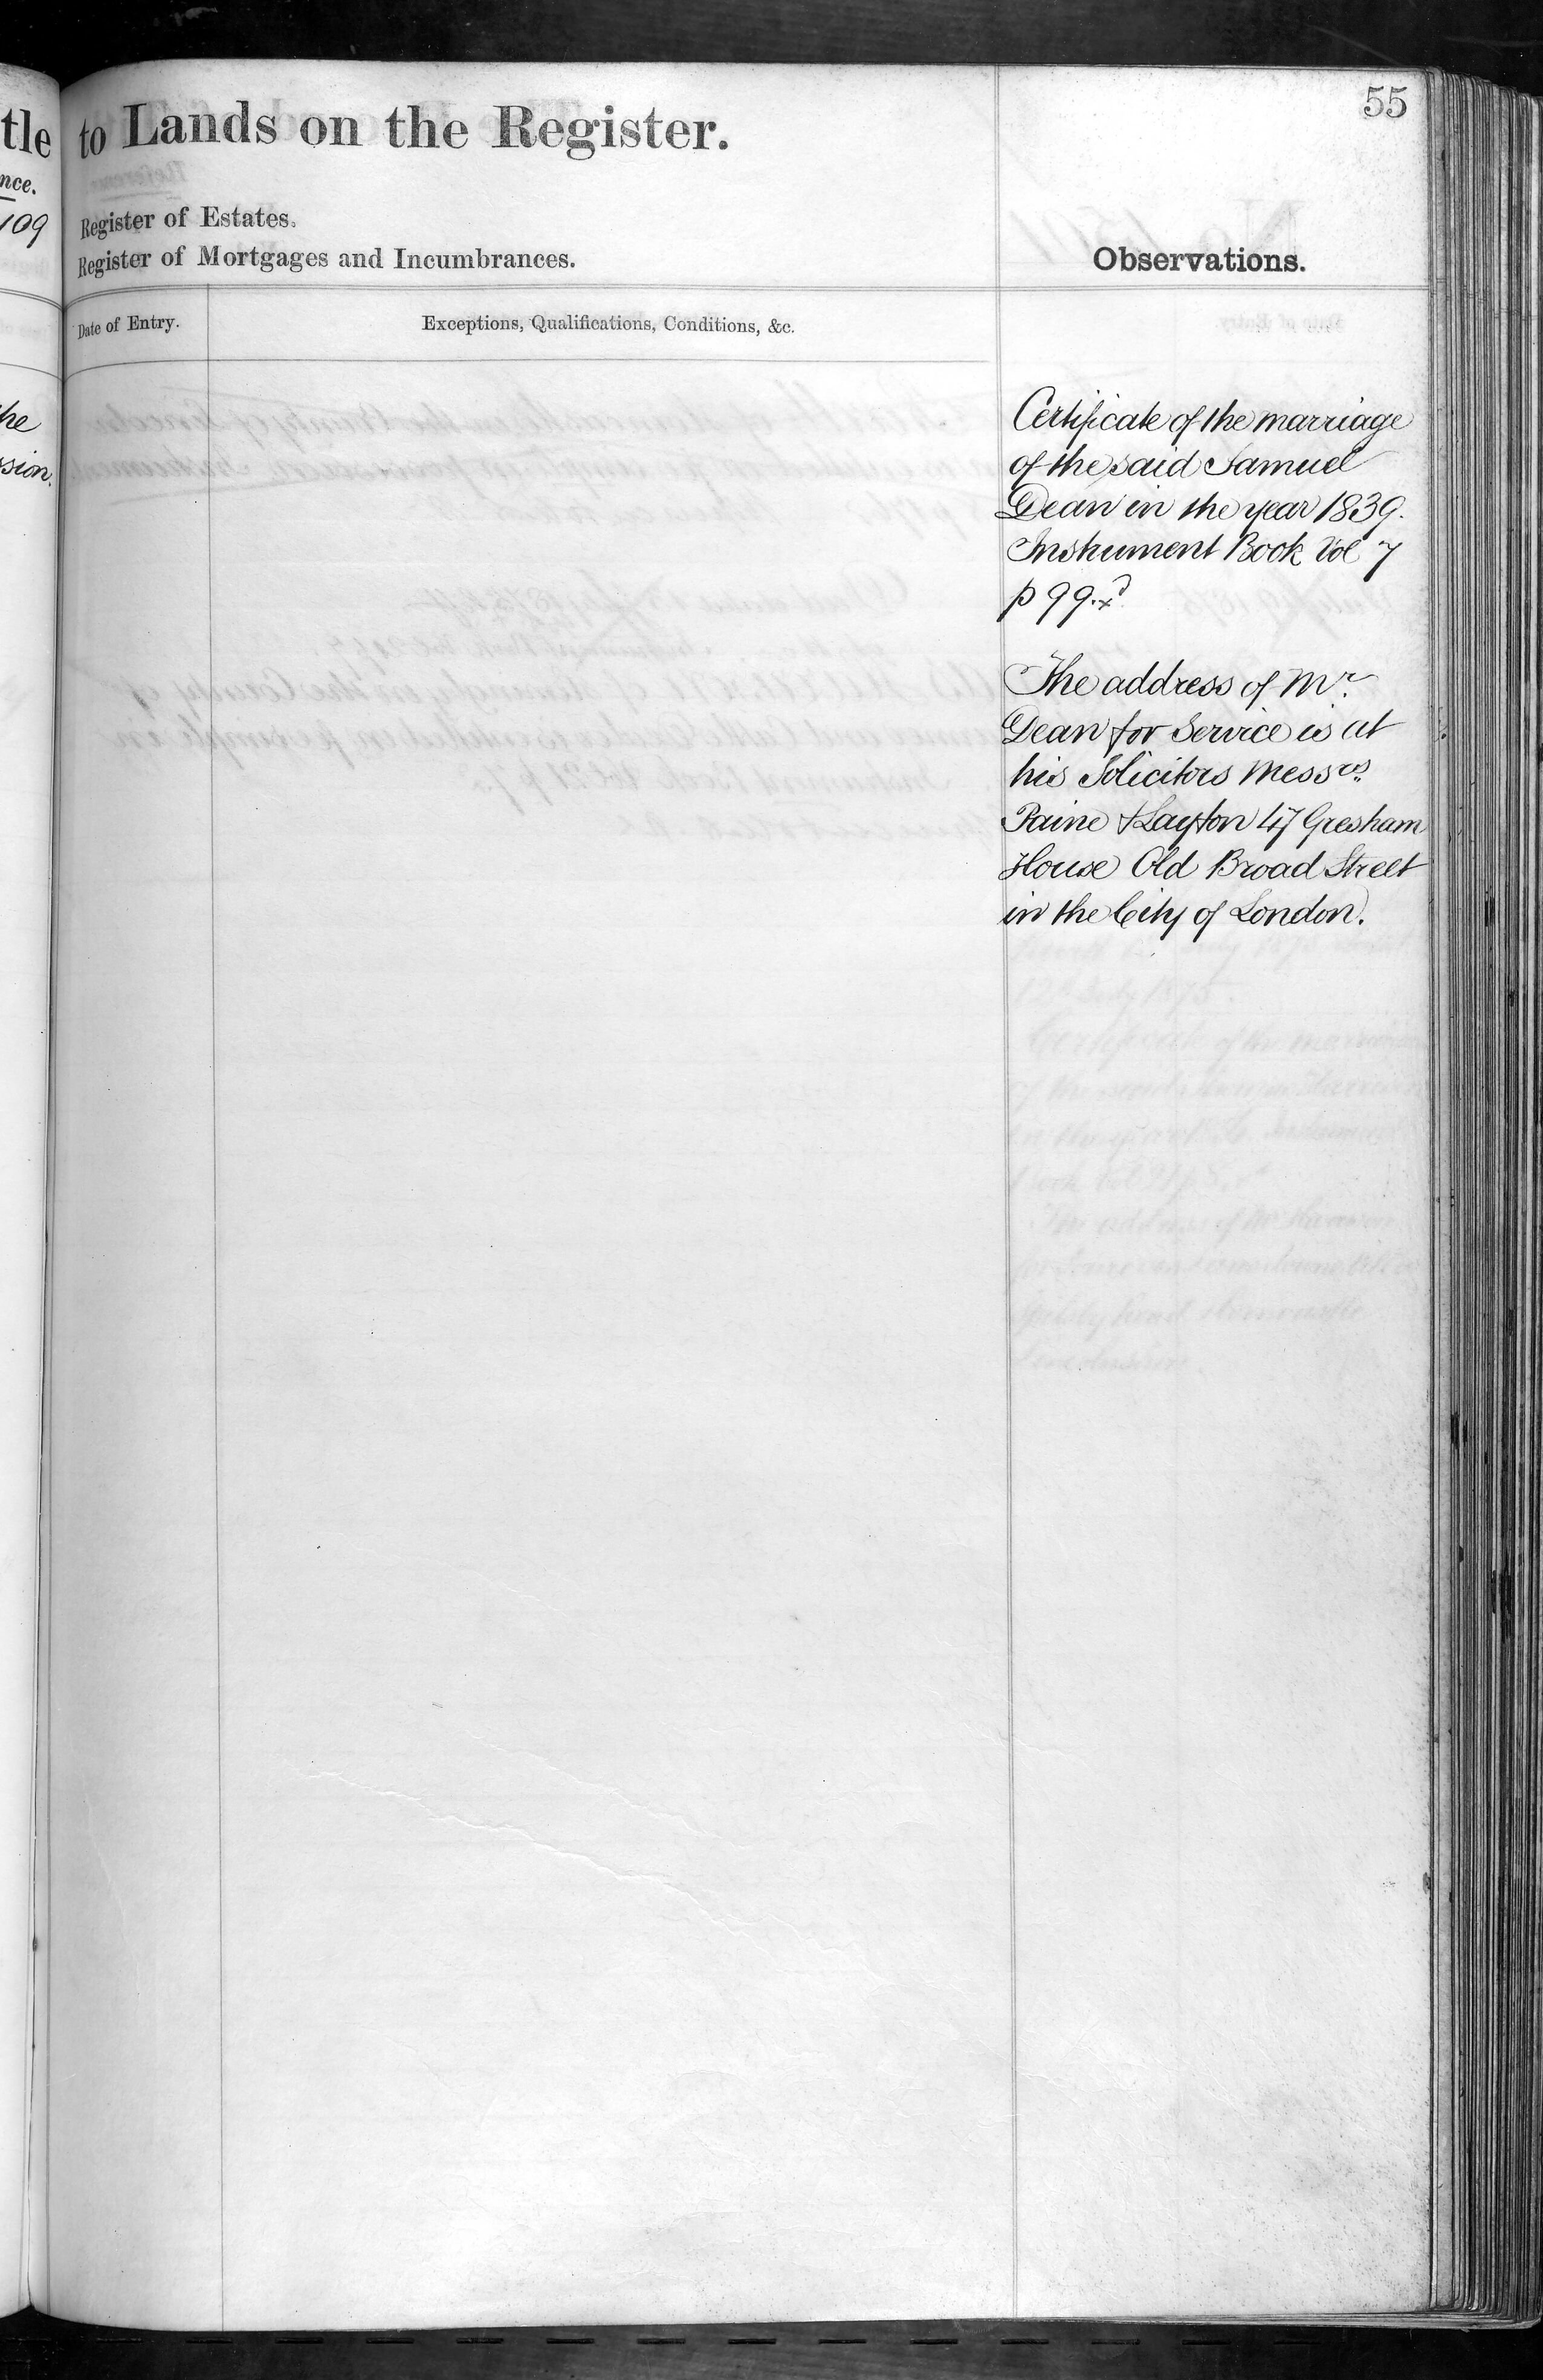 55
tle to Lands on the Register.
nce.
109
Register of Estates.
Register of Mortgages and Incumbrances.
Observations.
Date of Entry.
Exceptions, Qualifications, Conditions, &c.
he
ssion.
Certificate of the marriage
of the said Samuel
Dean in the year 1839.
Instrument Book Vol 7
p 99.
The address of Mr.
Dean for Service is at
his Solicitors Messrs.
Paine & Layton 47 Gresham
House Old Broad Street
in the City of London.